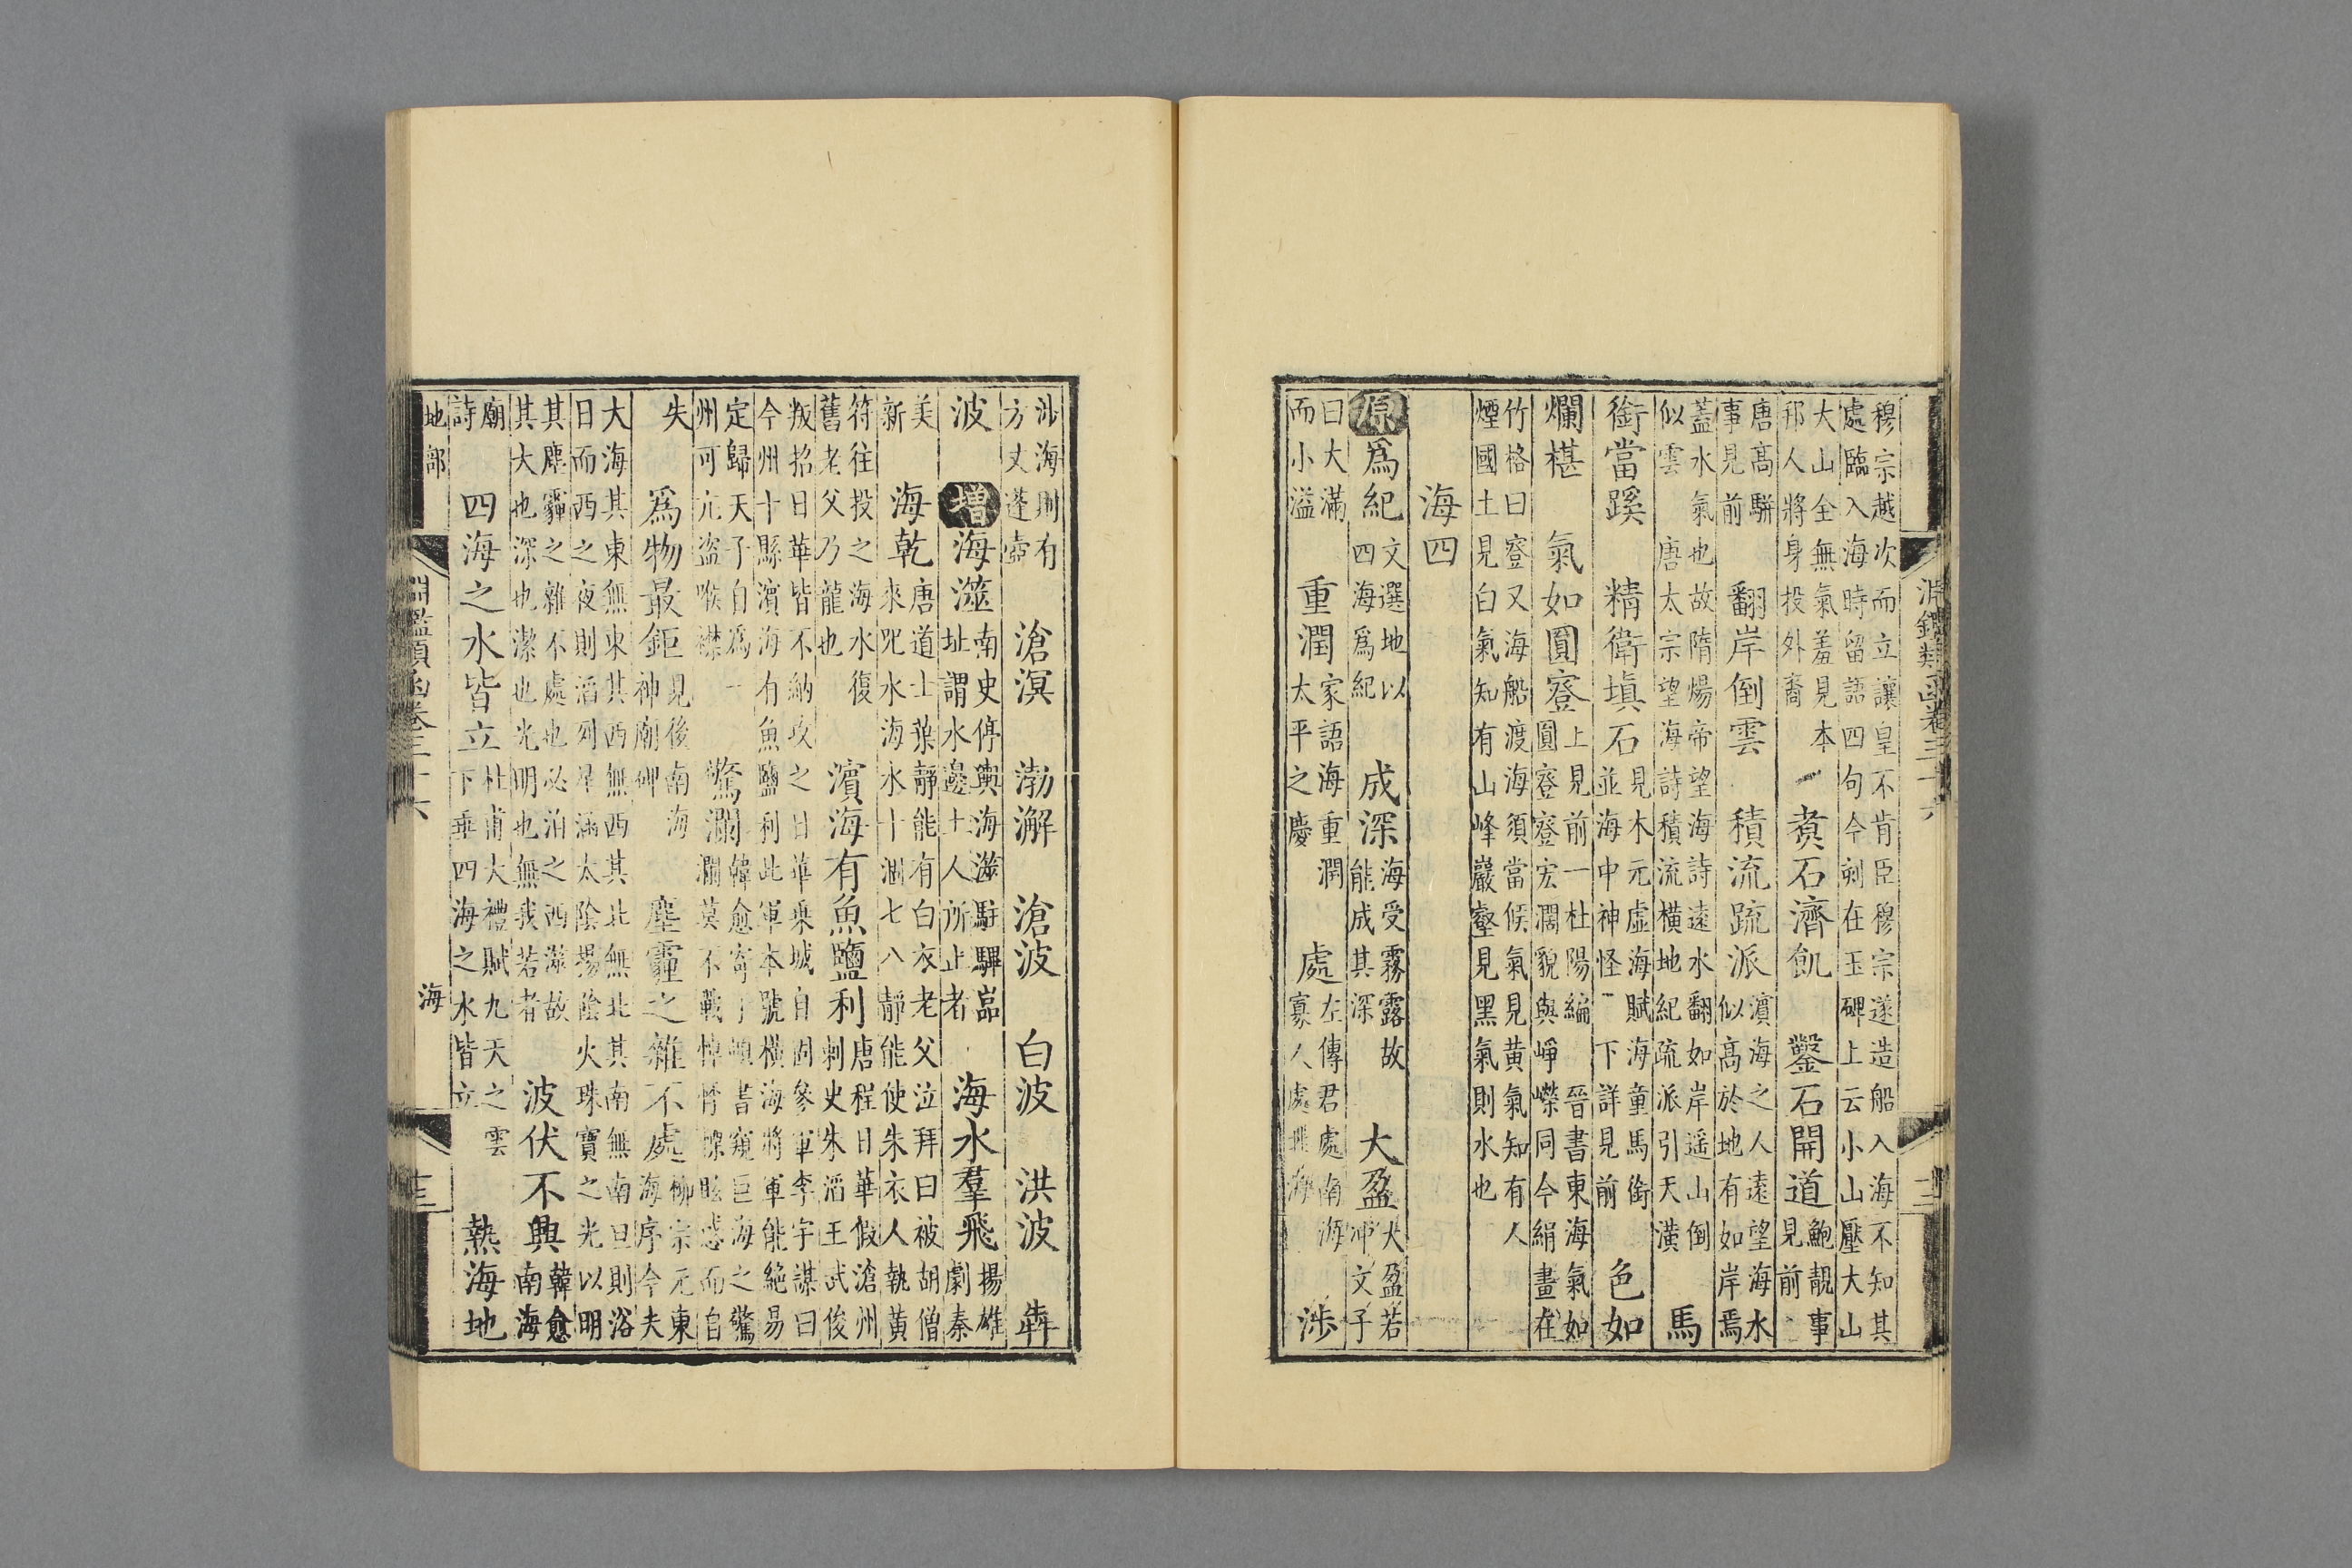 穆宗越次而立讓皇不肯臣穆宗遂造船入海不知其
處臨入海時留語四句今刻在玉碑上云小山壓大山
大山全無氣羞見本邦人將身投外裔 煮石濟飢 鑿石開道鮑靚事見前
唐高駢事見前 翻岸倒雲 積流疏派濱海之人遠望海水似高於地有如岸焉
蓋水氣也故隋煬帝望海詩遠水翻如岸遥山倒似雲唐太宗望海詩積流橫地紀疏派引天潢 馬
銜當蹊 精衛塡石見木元虛海賦海童馬銜並海中神怪 下詳見前 色如
爛椹 氣如圓簦上見前一杜陽編 晉書東海氣如圓簦簦宏濶貌與崢嶸同今絹畫在
竹格曰簦又海船渡海須當候氣見黃氣知有人
煙國土見白氣知有山峰巖壑見黑氣則水也
海四
原爲紀文選地以四海爲紀 成深海受霧露故能成其深 大盈大盈若冲文子
曰大滿而小溢 重潤家語海重潤太平之慶 處左傳君處南海寡人處北海 涉
淵鑑類函卷三十六
渤海則有方丈蓬壺 滄溟 渤澥 滄波 白波 洪波 犇
波 增海澨南史停輿海澨駐驆嵓址謂水邊土人所止者 海水羣飛揚雄劇秦
美新 海乾唐道士葉靜能有白衣老父泣拜曰被胡僧來咒水海水十涸七八靜能使朱衣人執黃
符往投之海水復舊老父乃龍也 濱海有魚鹽利唐程日華假滄州刺史朱滔王武俊
叛招日華皆不納攻之日華乘城自固參軍李宇謀曰
今州十縣濱海有魚鹽利此軍本號橫海將軍能絶易
定歸天子自爲一州可亢盜喉襟 驚瀾韓愈寄于頔書窺巨海之驚瀾莫不戰悼脊慄眩惑而自
失 爲物最鉅見後南海神廟碑 塵霾之雜不處柳宗元東海序今夫
大海其東無東其西無西其北無北其南無南旦則浴
日而西之夜則滔列星涵太陰揚陰火珠寶之光以明
其塵霾之雜不處也必泊之西澨故其大也深也潔也光明也無我若者 波伏不興韓愈南海
廟詩 四海之水皆立杜甫大禮賦九天之雲下垂四海之水皆立 熱海地
地部 淵鑑類函卷三十六 海 十三